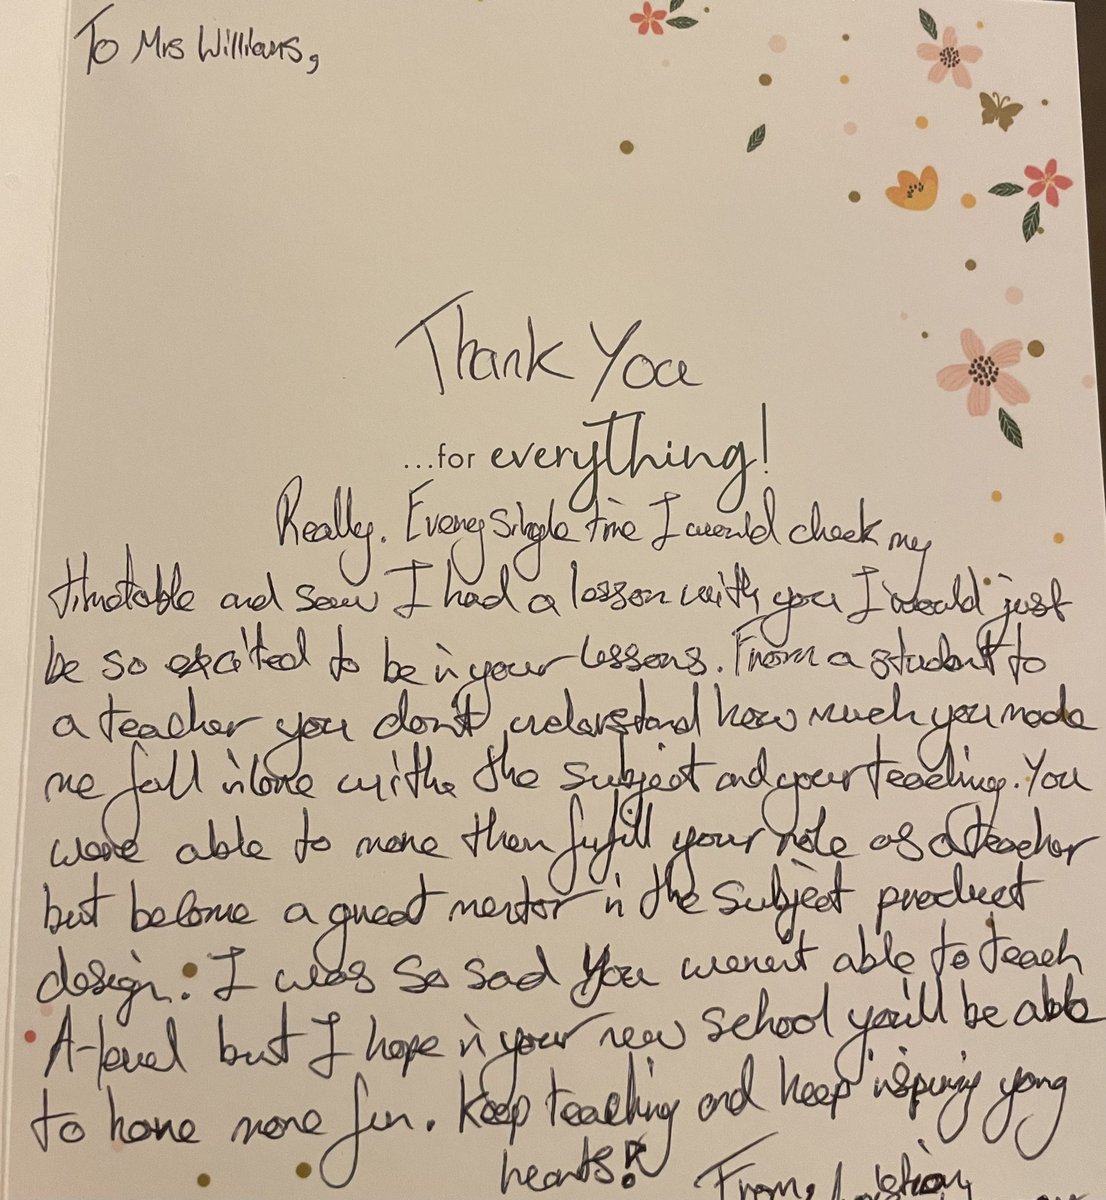 To Mrs Williams,
Thank You
...for everything!
Really. Every single time I would check my
timetable and saw I had a lesson with you I would just
be so excited to be in your lessons. From a student to
a teacher you don't understand how much you made
me fall in love with the subject and your teaching. You
were able to more then fufill your role as a teacher
but become a great mentor in the subject product
design. I was so sad you weren't able to teach
A-level but I hope in your new school you'll be able
to have more fun. Keep teaching and keep inspiring yong
hearts!
From,